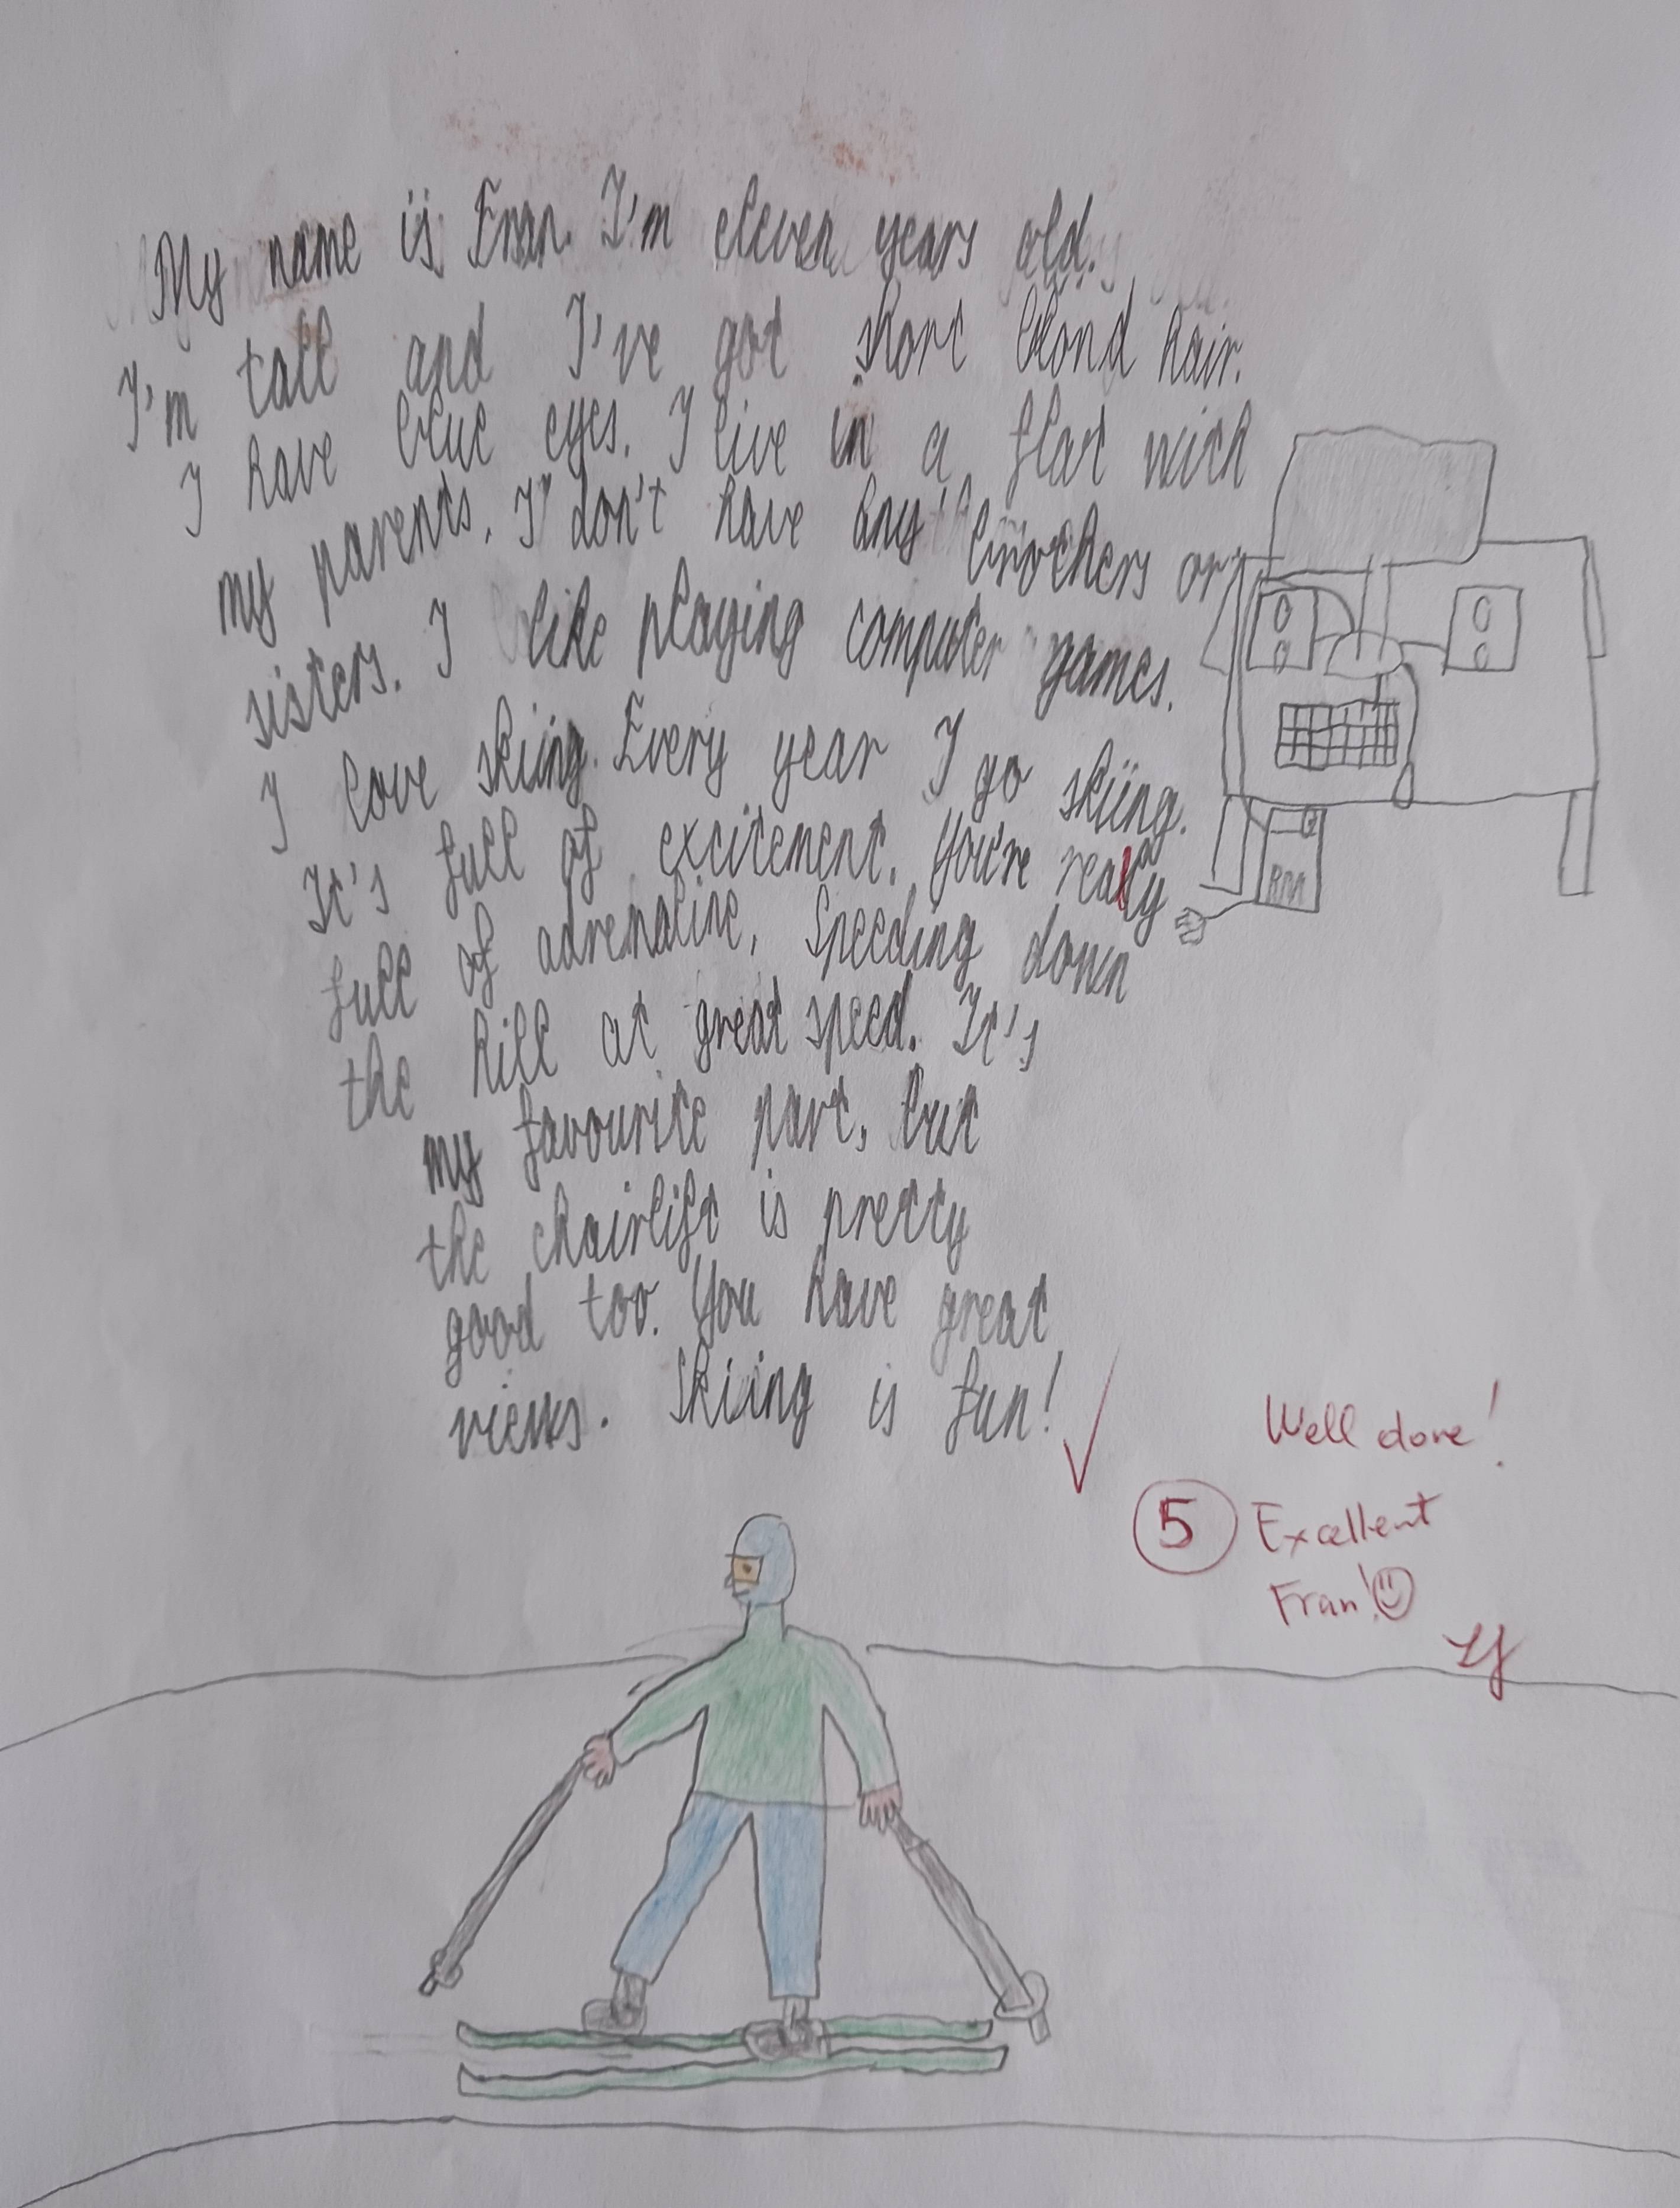 My name is Fran. I'm eleven years old.
I'm tall and I've got short blond hair.
I have blue eyes. I live in a flat with
my parents. I don't have any brothers or
sisters. I like playing computer games.
I love skiing. Every year I go skiing.
It's full of excitement. You're really
full of adrenaline, speeding down
the hill at great speed. It's
my favourite part, but
the chairlift is pretty
good too. You have great
views. Skiing is fun!
Well done!
5 Excellent
Fran!